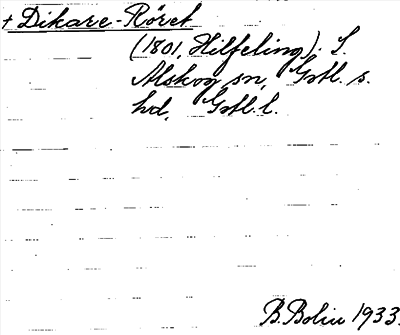 + Dikare-Röret
(1801, Hilfeling). L.
Alskog sn, Gotl. s.
hd, Gotl. l.
B. Bolin 1933.